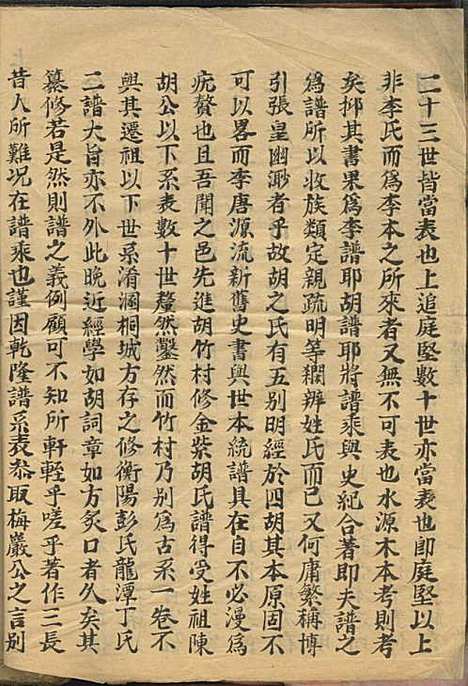 二十三世皆當表也上追庭堅數十世亦當表也即庭堅以上
非李氏而為李本之所來者又無不可表也水源木本考則考
矣抑其書果為李譜耶胡譜耶將譜乘與史紀合著即夫譜之
為譜所以收族類定親疏明等襴辨姓氏而已又何庸繁稱博
引張皇幽渺者乎故胡之氏有五别明經於四胡其本原固不
可以畧而李唐源流新舊史書與世本統譜具在自不必漫為
疣贅也且吾聞之邑先進胡竹村修金紫胡氏譜得受姓祖陳
胡公以下系表數十世釐然鑿然而竹村乃别為古系一卷不
與其遷祖以下世系淆溷桐城方存之修衡陽彭氏龍潭丁氏
二譜大旨亦不外此晚近經學如胡詞章如方炙口者久矣其
纂修若是然則譜之義例顧可不知所軒輊乎嗟乎著作三長
昔人所難况在譜乘也謹因乾隆譜系表叅取梅巖公之言别